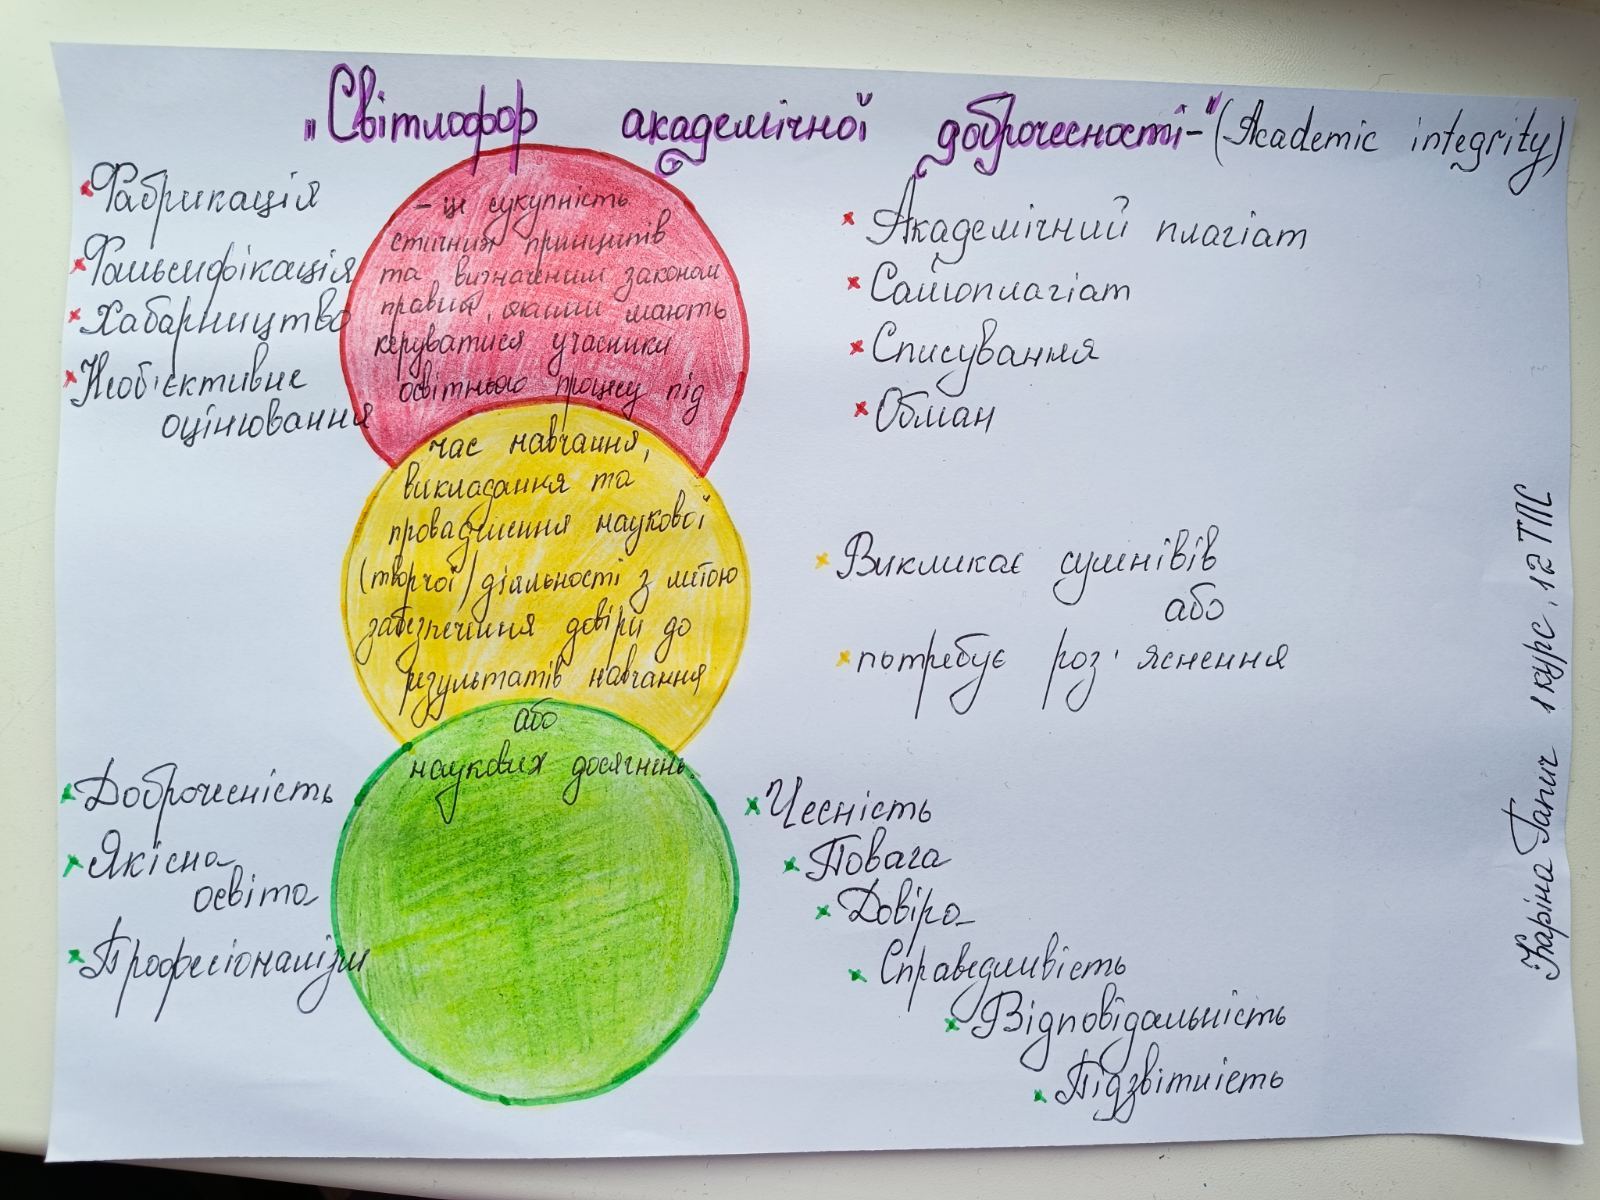 "Світлофор академічної доброчесності-" (Academic integrity)
Фабрикація
Фальсифікація
Хабарництво
Необ'єктивне
оцінювання
- це сукупність
етичних принципів
та визначених законом
правил, якими мають
керуватися учасники
освітнього процесу під
час навчання,
викладання та
провадження наукової
(творчої) діяльності з метою
забезпечення довіри до
результатів навчання
або
наукових досягнень.
Академічний плагіат
Самоплагіат
Списування
Обман
Викликає сумнівів
або
потребує роз'яснення
Доброчесність
Якісна
освіта
Професіоналізм
Чесність
Повага
Довіра
Справедливість
Відповідальність
Підзвітність
Каріна Гапич 1 курс, 12 ТПС